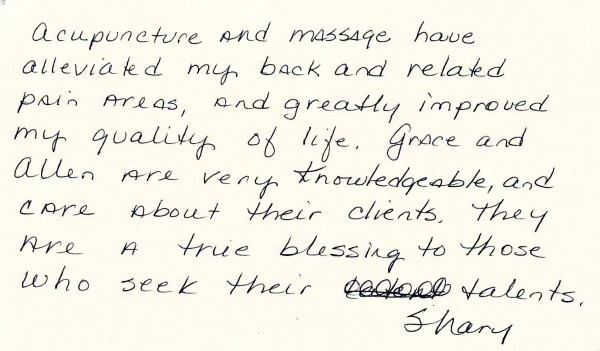 Acupuncture and massage have
alleviated my back and related
pain areas, and greatly improved
my quality of life. Grace and
Allen are very knowledgeable, and
care about their clients. They
are a true blessing to those
who seek their talents.
Shary